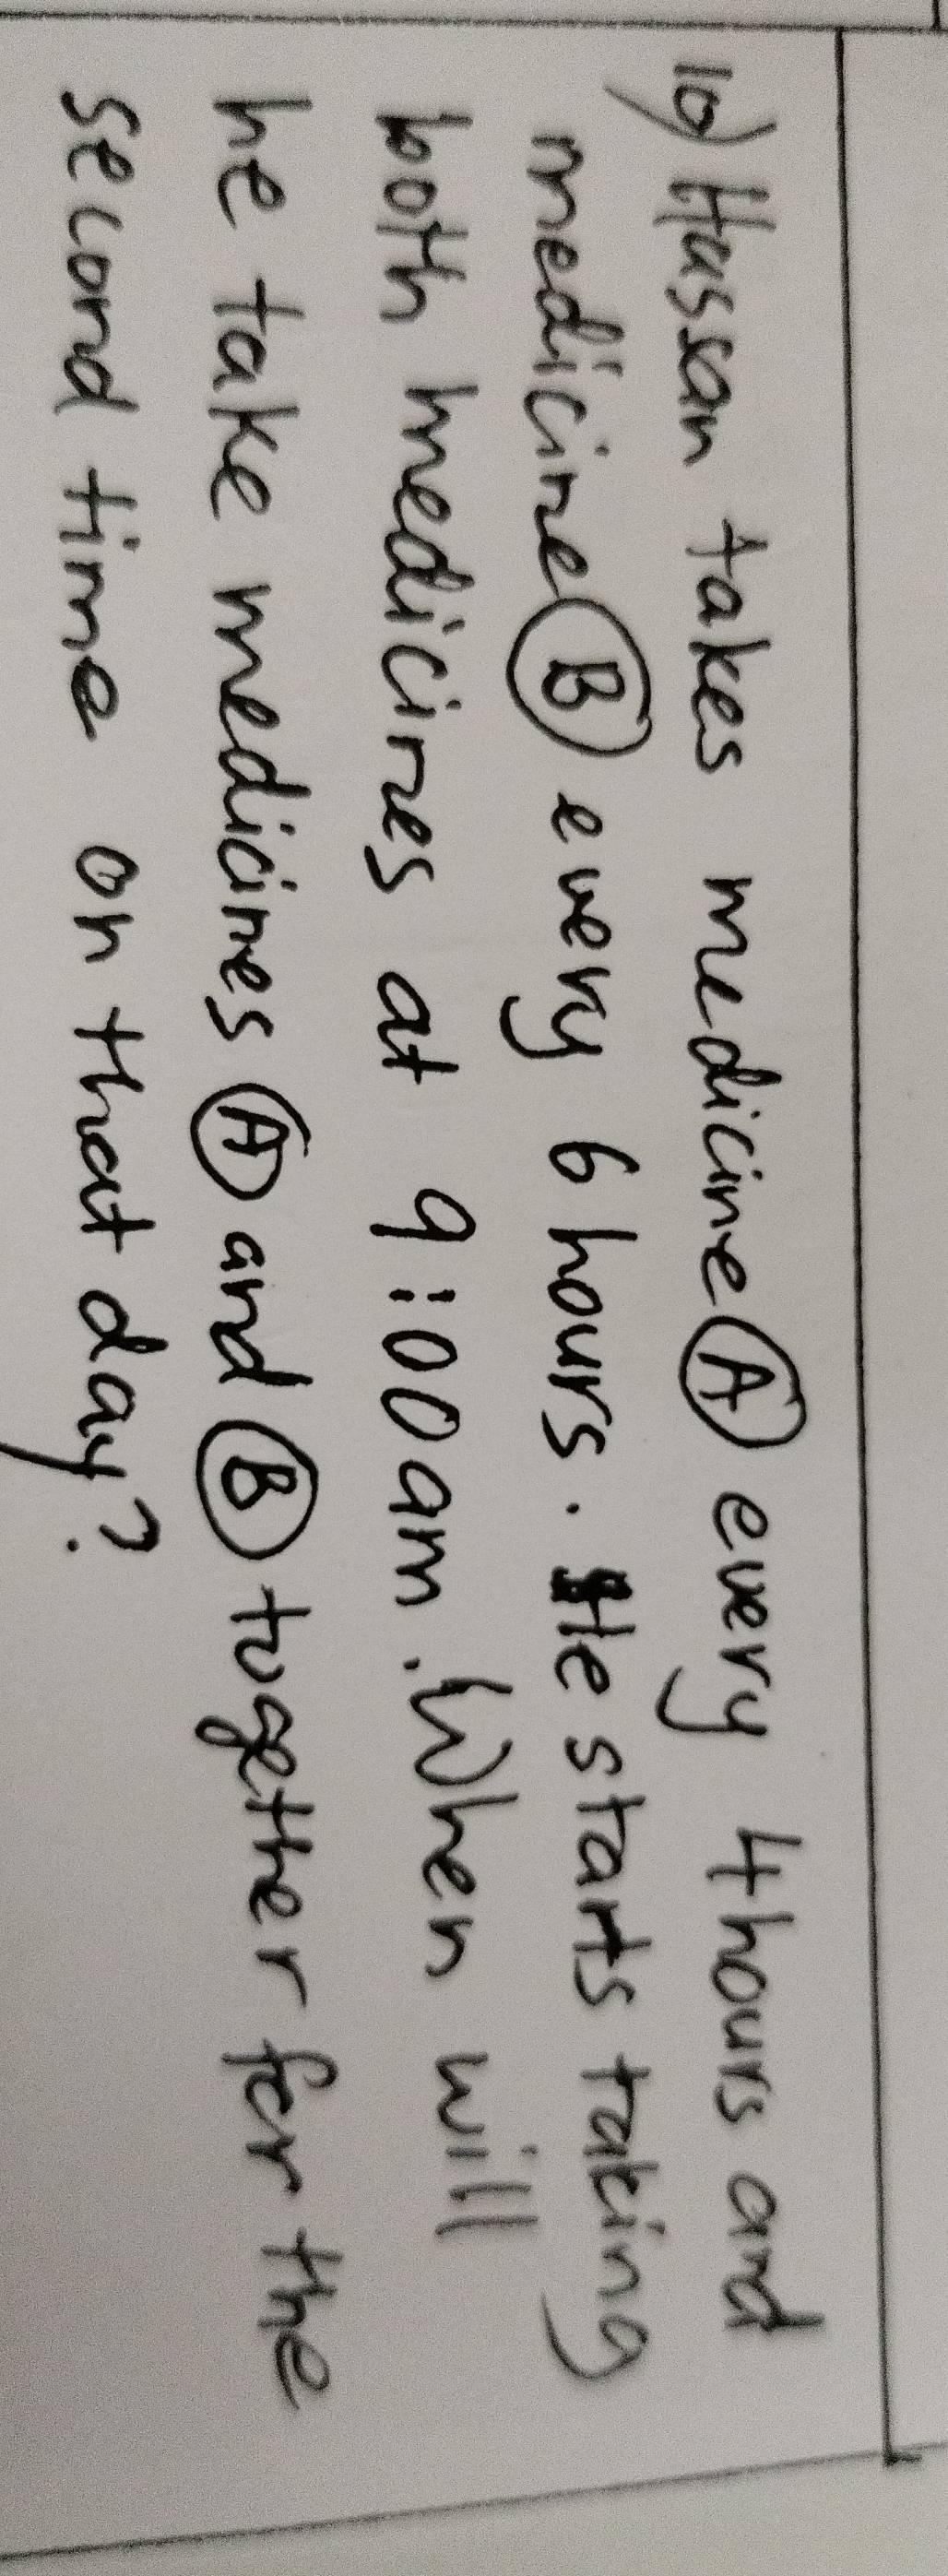 10) Hassan takes medicine A every 4 hours and
medicine B every 6 hours. He starts taking
both medicines at 9:00am. When will
he take medicines A and B together for the
second time on that day?